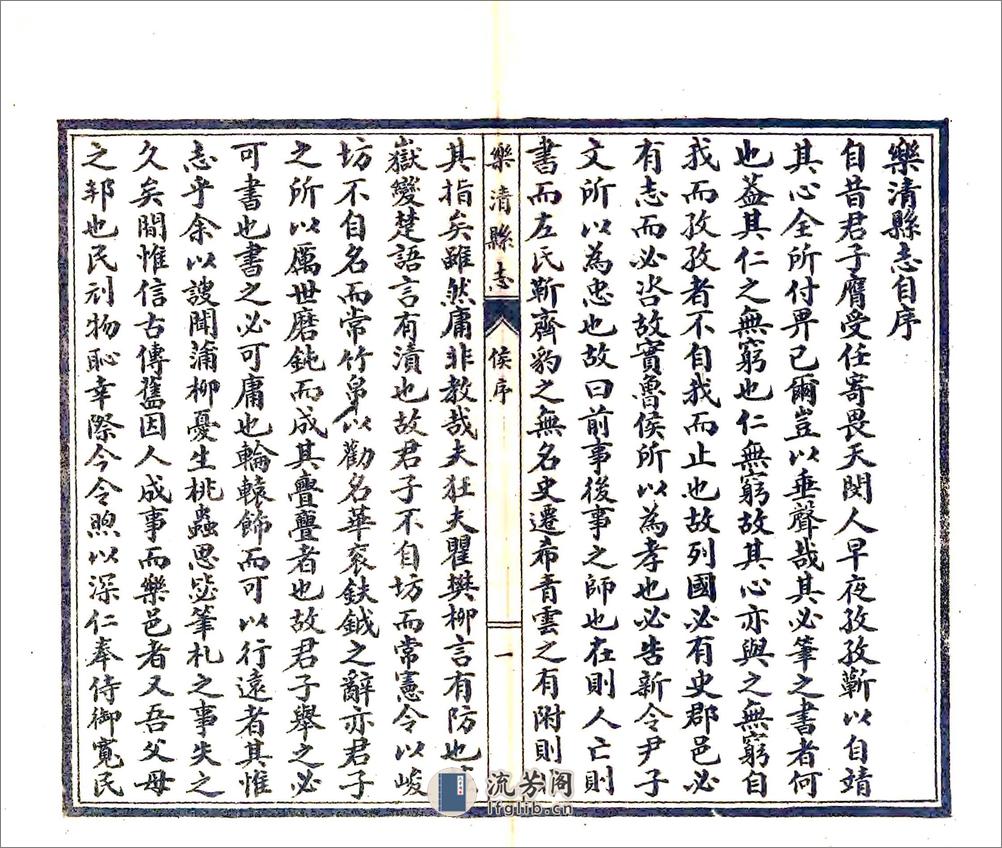 樂清縣志自序
自昔君子膺受任寄畏天閔人早夜孜孜蘄以自靖
其心全所付畀已爾豈以垂聲哉其必筆之書者何
也蓋其仁之無窮也仁無窮故其心亦與之無窮自
我而孜孜者不自我而止也故列國必有史郡邑必
有志而必咨故實魯侯所以為孝也必告新令尹子
文所以為忠也故曰前事後事之師也在則人亡則
書而左氏靳齊豹之無名史遷希青雲之有附則
樂清縣志
侯序
一
其指矣雖然庸非教哉夫狂夫瞿樊柳言有防也
嶽變楚語言有瀆也故君子不自坊而常憲令以峻
坊不自名而常竹帛以勸名華袞鈇鉞之辭亦君子
之所以厲世磨鈍而成其亹亹者也故君子舉之必
可書也書之必可庸也輪轅飾而可以行遠者其惟
志乎余以謏聞蒲柳憂生桃蟲思毖筆札之事失之
久矣間惟信古傳舊因人成事而樂邑者又吾父母
之邦也民刓物恥幸際今令煦以深仁奉侍御寬民
流芳阁
lfglib.cn